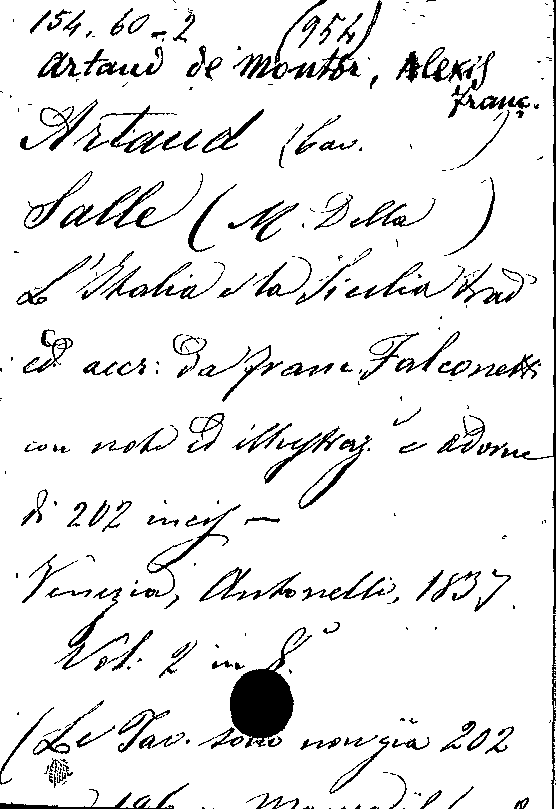 154. 60-2 (954)
Artaud de Montor, Alexis
Franç.
Artaud (Cav. )
Salle (M. Della )
L'Italia e la Sicilia trad
ed accr: da Franc. Falconetti
con note ed illustraz.i e adorne
di 202 incis —
Venezia, Antonelli, 1837.
Vol: 2 in 8.°
(Le Tav. sono non già 202
196